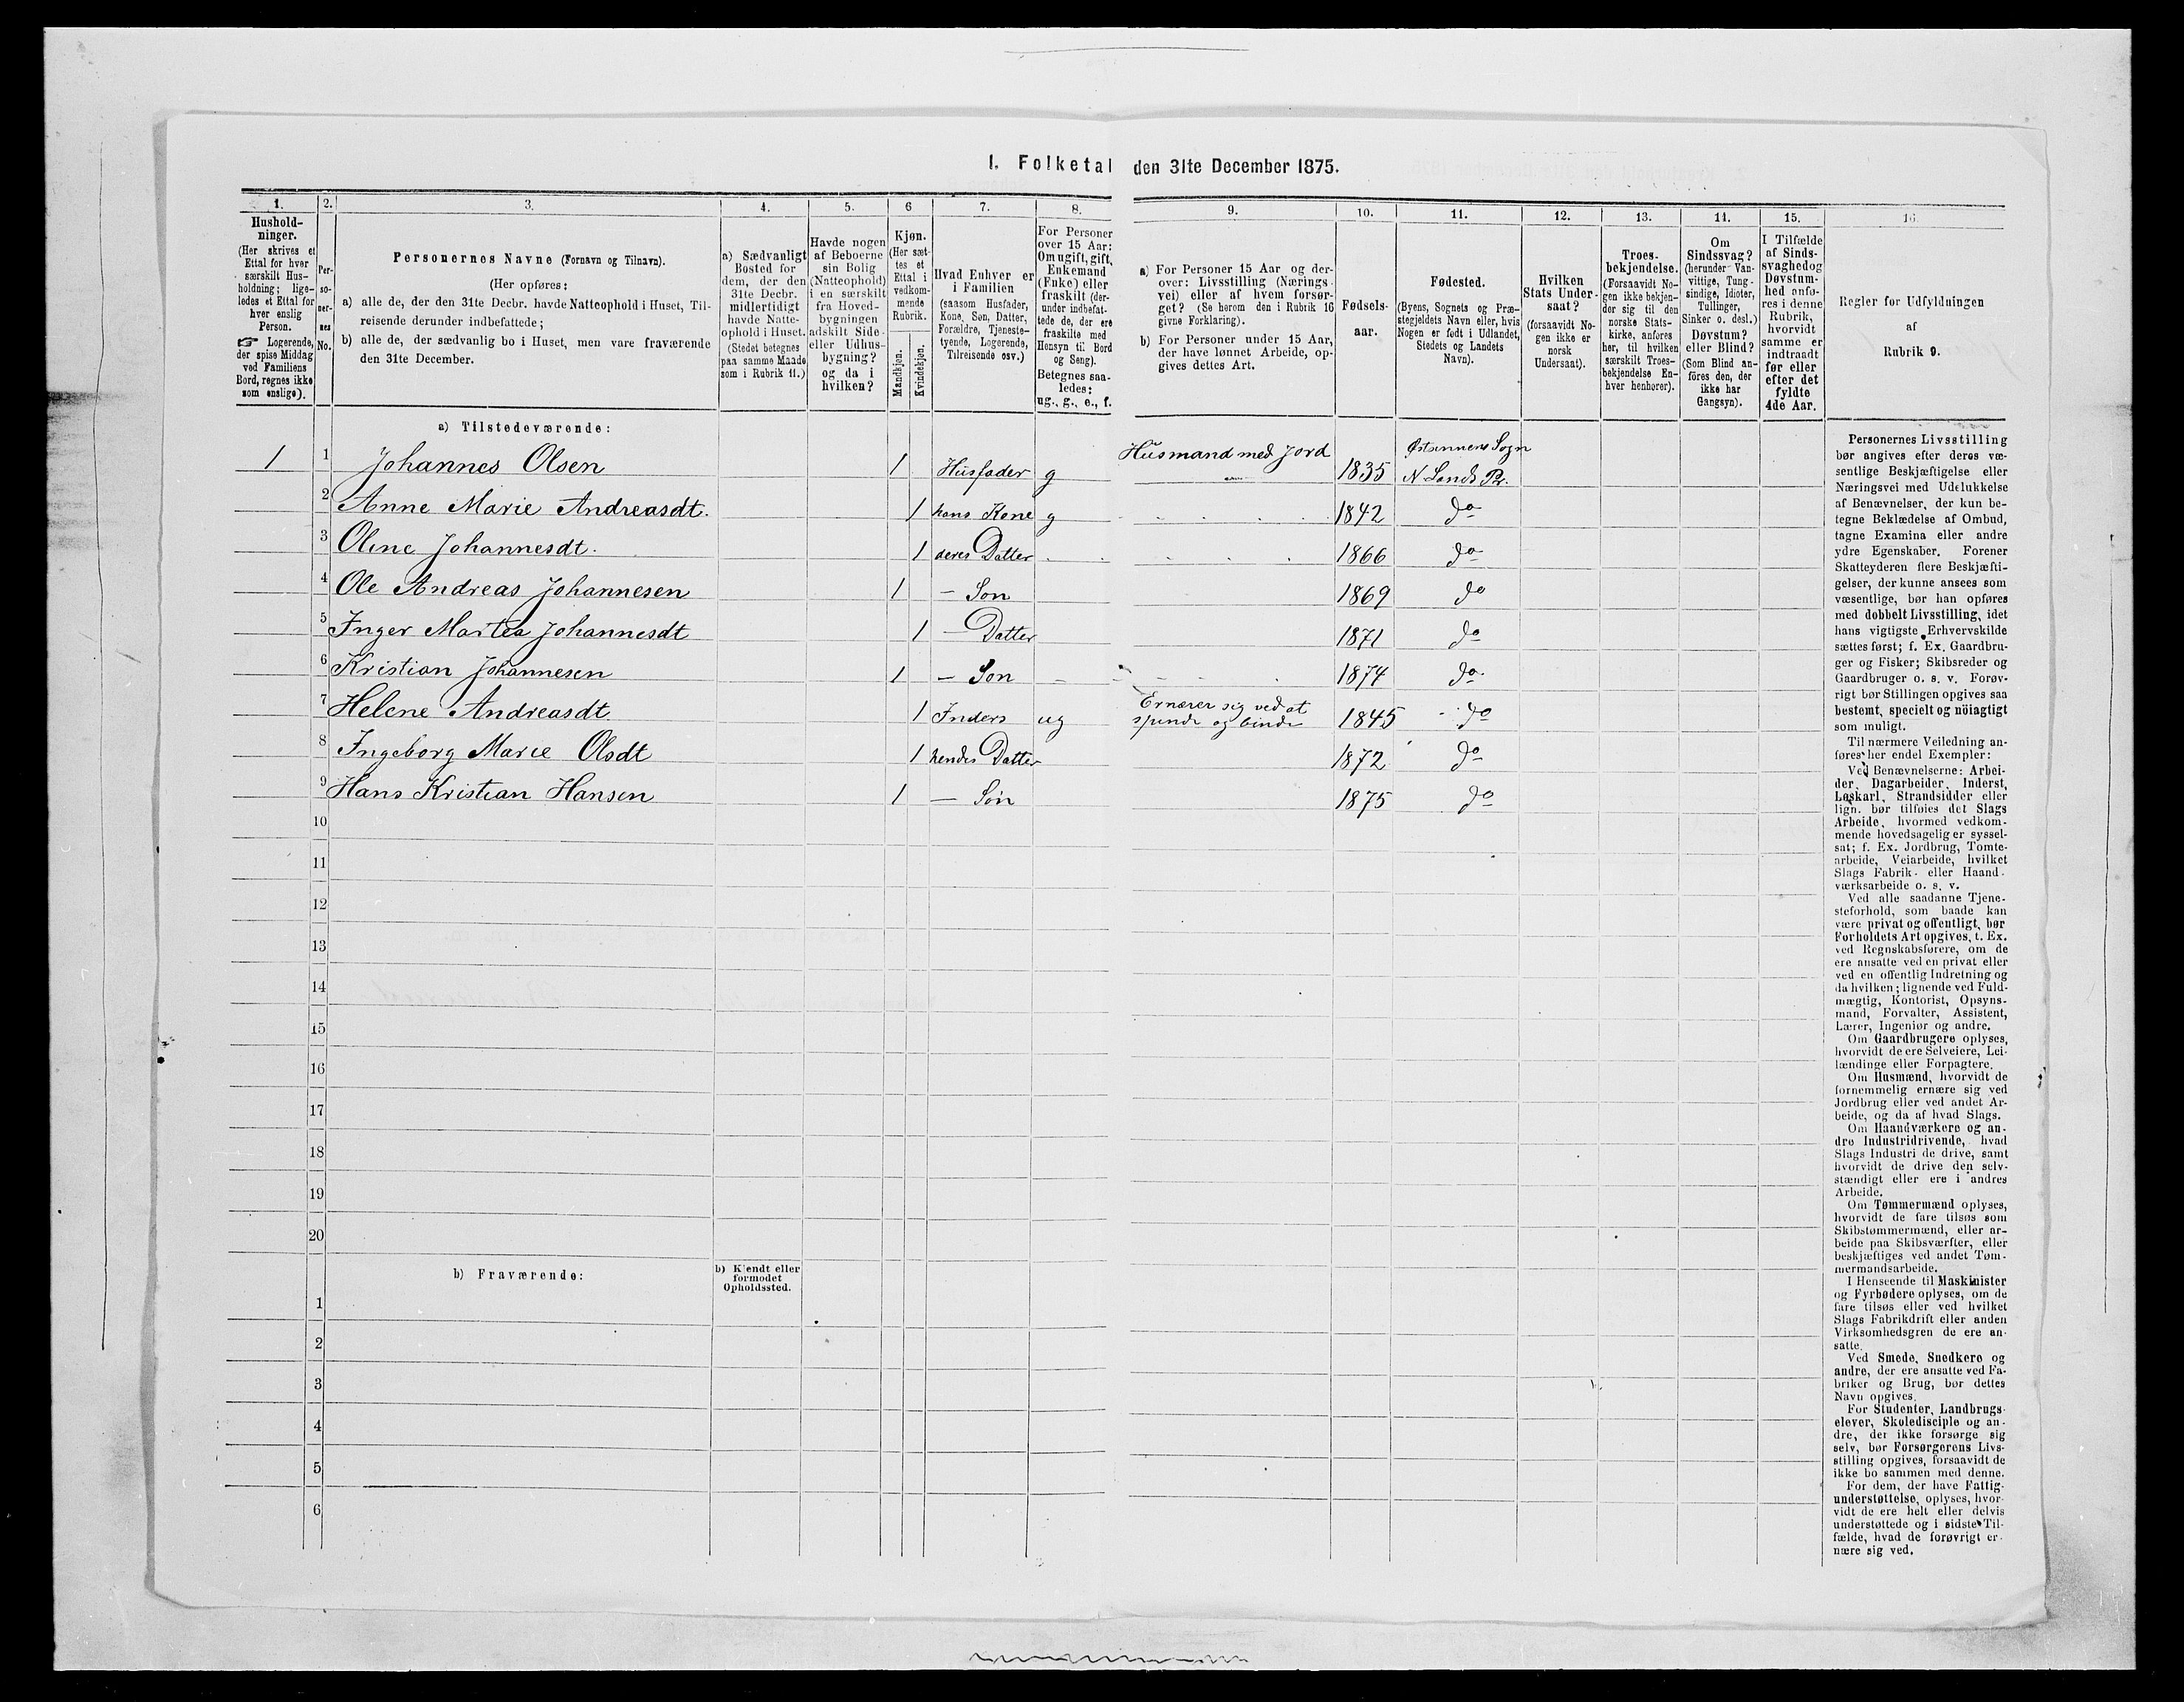 I. Folketal den 31te December 1875.
1. 2. 3. 4. 5. 6 7. 8. 9. 10. 11. 12. 13. 14. 15. 16
Hushold-
ninger.
(Her skrives et
Ettal for hver
særskilt Hus-
holdning; lige-
ledes et Ettal for
hver enslig
Person.
☞ Logerende,
der spise Middag
ved Familiens
Bord, regnes ikke
som enslige).
Per-
so-
ner-
nes
No.
Personernes Navne (Fornavn og Tilnavn).
(Her opføres:
a) alle de, der den 31te Decbr. havde Natteophold i Huset, Til-
reisende derunder indbefattede;
b) alle de, der sædvanlig bo i Huset, men vare fraværende
den 31te December.
a) Sædvanligt
Bosted for
dem, der den
31te Decbr.
midlertidigt
havde Natte-
ophold i Huset.
(Stedet betegnes
paa samme Maade
som i Rubrik 11.)
Havde nogen
af Beboerne
sin Bolig
(Natteophold)
i en særskilt
fra Hoved-
bygningen
adskilt Side-
eller Udhus-
bygning?
og da i
hvilken?
Kjøn.
(Her sæt-
tes et
Ettal i
vedkom-
mende
Rubrik.
Mandkjøn.
Kvindekjøn.
Hvad Enhver er
i Familien
(saasom Husfader,
Kone, Søn, Datter,
Forældre, Tjeneste-
tyende, Logerende,
Tilreisende osv.)
For Personer
over 15 Aar:
Om ugift, gift,
Enkemand
(Enke) eller
fraskilt (der-
under indbefat-
tede de, der ere
fraskilte med
Hensyn til Bord
og Seng).
Betegnes saa-
ledes:
ug., g., e., f.
a) For Personer 15 Aar og der-
over: Livsstilling (Nærings-
vei) eller af hvem forsør-
get? (Se herom den i Rubrik 16
givne Forklaring).
b) For Personer under 15 Aar,
der have lønnet Arbeide, op-
gives dettes Art.
Fødsels-
aar.
Fødested.
(Byens, Sognets og Præ-
stegjeldets Navn eller, hvis
Nogen er født i Udlandet,
Stedets og Landets
Navn).
Hvilken
Stats Under-
saat?
(forsaavidt No-
gen ikke er
norsk
Undersaat).
Troes-
bekjendelse.
(Forsaavidt No-
gen ikke bekjen-
der sig til den
norske Stats-
kirke, anføres
her, til hvilken
særskilt Troes-
bekjendelse En-
hver henhører).
Om
Sindssvag?
(herunder Van-
vittige, Tung-
sindige, Idioter,
Tullinger,
Sinker o. desl.)
Døvstum?
eller Blind?
(Som Blind an-
føres den, der
ikke har
Gangsyn).
I Tilfælde
af Sinds-
svaghed og
Døvstum-
hed anfø-
res i denne
Rubrik,
hvorvidt
samme er
indtraadt
før eller
efter det
fyldte
4de Aar.
Regler for Udfyldningen
af
Rubrik 9.
a) Tilstedeværende:
1 1 Johannes Olsen 1 Husfader g Husmand med Jord 1835 Østsinnens Sogn
N Lands Pr.
2 Anne Marie Andreasdt. 1 hans Kone g 1842 do
3 Oline Johannesdt. 1 deres Datter 1866 do
4 Ole Andreas Johannesen 1 – Søn 1869 do
5 Inger Martea Johannesdt 1 – Datter 1871 do
6 Kristian Johannesen 1 – Søn 1874 do
7 Helene Andreasdt. 1 Inders ug Ernærer sig ved at
spinde og binde 1845 do
8 Ingeborg Marie Olsdt 1 hendes Datter 1872 do
9 Hans Kristian Hansen 1 – Søn 1875 do
10
11
12
13
14
15
16
17
18
19
20
b) Fraværende:
b) Kjendt eller
formodet
Opholdssted.
1
2
3
4
5
6
Personernes Livsstilling
bør angives efter deres væ-
sentlige Beskjæftigelse eller
Næringsvei med Udelukkelse
af Benævnelser, der kun be-
tegne Beklædelse af Ombud,
tagne Examina eller andre
ydre Egenskaber. Forener
Skatteyderen flere Beskjæfti-
gelser, der kunne ansees som
væsentlige, bør han opføres
med dobbelt Livsstilling, idet
hans vigtigste Erhvervskilde
sættes først; f. Ex. Gaardbru-
ger og Fisker; Skibsreder og
Gaardbruger o. s. v. Forøv-
rigt bør Stillingen opgives saa
bestemt, specielt og nöiagtigt
som muligt.
Til nærmere Veiledning an-
føres her endel Exempler:
Ved Benævnelserne: Arbei-
der, Dagarbeider, Inderst,
Løskarl, Strandsidder eller
lign. bør tilføies det Slags
Arbeide, hvormed vedkom-
mende hovedsagelig er syssel-
sat; f. Ex. Jordbrug, Tomte-
arbeide, Veiarbeide, hvilket
Slags Fabrik- eller Haand-
værksarbeide o. s. v.
Ved alle saadanne Tjene-
steforhold, som baade kan
være privat og offentligt, bør
Forholdets Art opgives, t. Ex.
ved Regnskabsførere, om de
ere ansatte ved en privat eller
ved en offentlig Indretning og
da hvilken; lignende ved Fuld-
mægtig, Kontorist, Opsyns-
mand, Forvalter, Assistent,
Lærer, Ingeniør og andre.
Om Gaardbrugere oplyses,
hvorvidt de ere Selveiere, Lei-
lændinge eller Forpagtere.
Om Husmænd, hvorvidt de
fornemmelig ernære sig ved
Jordbrug eller ved andet Ar-
beide, og da af hvad Slags.
Om Haandværkere og an-
dre Industridrivende, hvad
Slags Industri de drive, samt
hvorvidt de drive den selv-
stændigt eller ere i andres
Arbeide.
Om Tømmermænd oplyses,
hvorvidt de fare tilsøs som
Skibstømmermænd, eller ar-
beide paa Skibsværfter, eller
beskjæftiges ved andet Tøm-
mermandsarbeide.
I Henseende til Maskinister
og Fyrbødere oplyses, om de
fare tilsøs eller ved hvilket
Slags Fabrikdrift eller anden
Virksomhedsgren de ere an-
satte.
Ved Smede, Snedkere og
andre, der ere ansatte ved Fa-
briker og Brug, bør dettes
Navn opgives.
For Studenter, Landbrugs-
elever, Skoledisciple og an-
dre, der ikke forsørge sig
selv, bør Forsørgerens Livs-
stilling opgives, forsaavidt de
ikke bo sammen med denne.
For dem, der have Fattig-
understøttelse, oplyses, hvor-
vidt de ere helt eller delvis
understøttede og i sidste Til-
fælde, hvad de forøvrigt er-
nære sig ved.